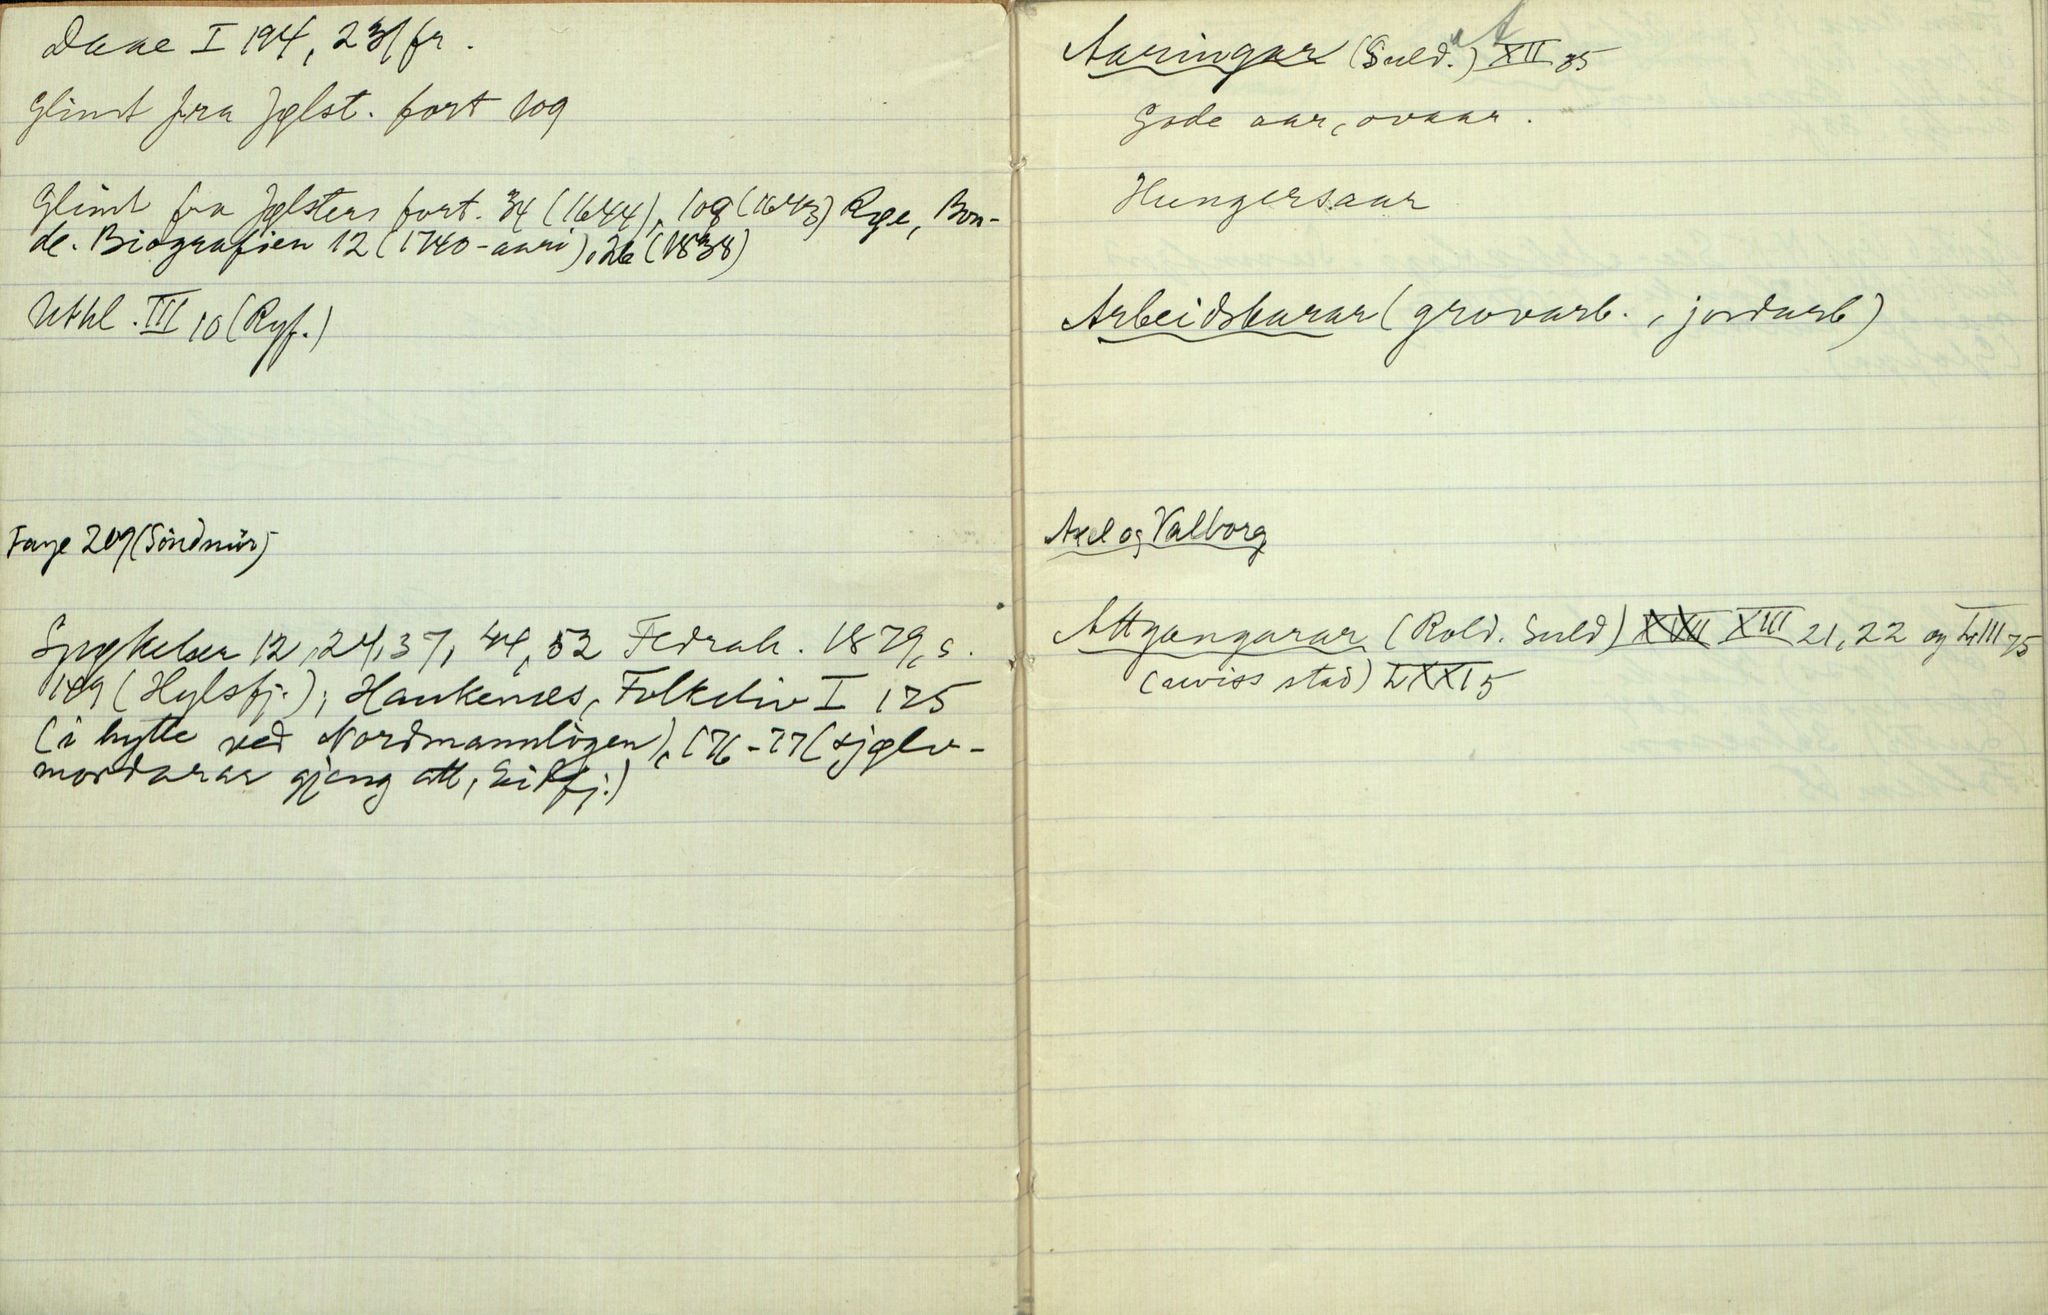 Daae I 194, 231 fr.
Glimt fra Jølst. fort 109
Glimt fra Jølsters fort. 34 (1644), 109 (1643) Røe, Bon-
de. Biografien 12 (1740-aari), 26 (1838)
Utkl. III 10 (Ryf.)
Faye 209 (Söndmör)
Spøkelser 12, 24, 37, 44, 52 Fedrah. 1879, s.
189 (Hylsfj.); Haukenæs, Folkeliv I 175
(i hytte ved Nordmannlögen), 176-77 (sjølv-
mordarar gjeng att, Eidfj.)
Aaringar (Suld.) XII 35
Gode aar, ovaar.
Hungersaar
Arbeidskarar (grovarb., jordarb)
Axel og Valborg
Attgangarar (Rold. Suld) XVII XIII 21, 22 og LIII 75
(aviss stad) LXXI 5